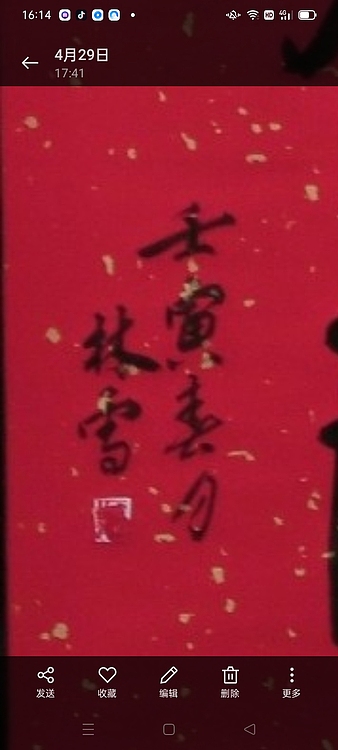 16:14
4月29日
17:41
壬寅春月
林雪
发送
收藏
编辑
删除
更多